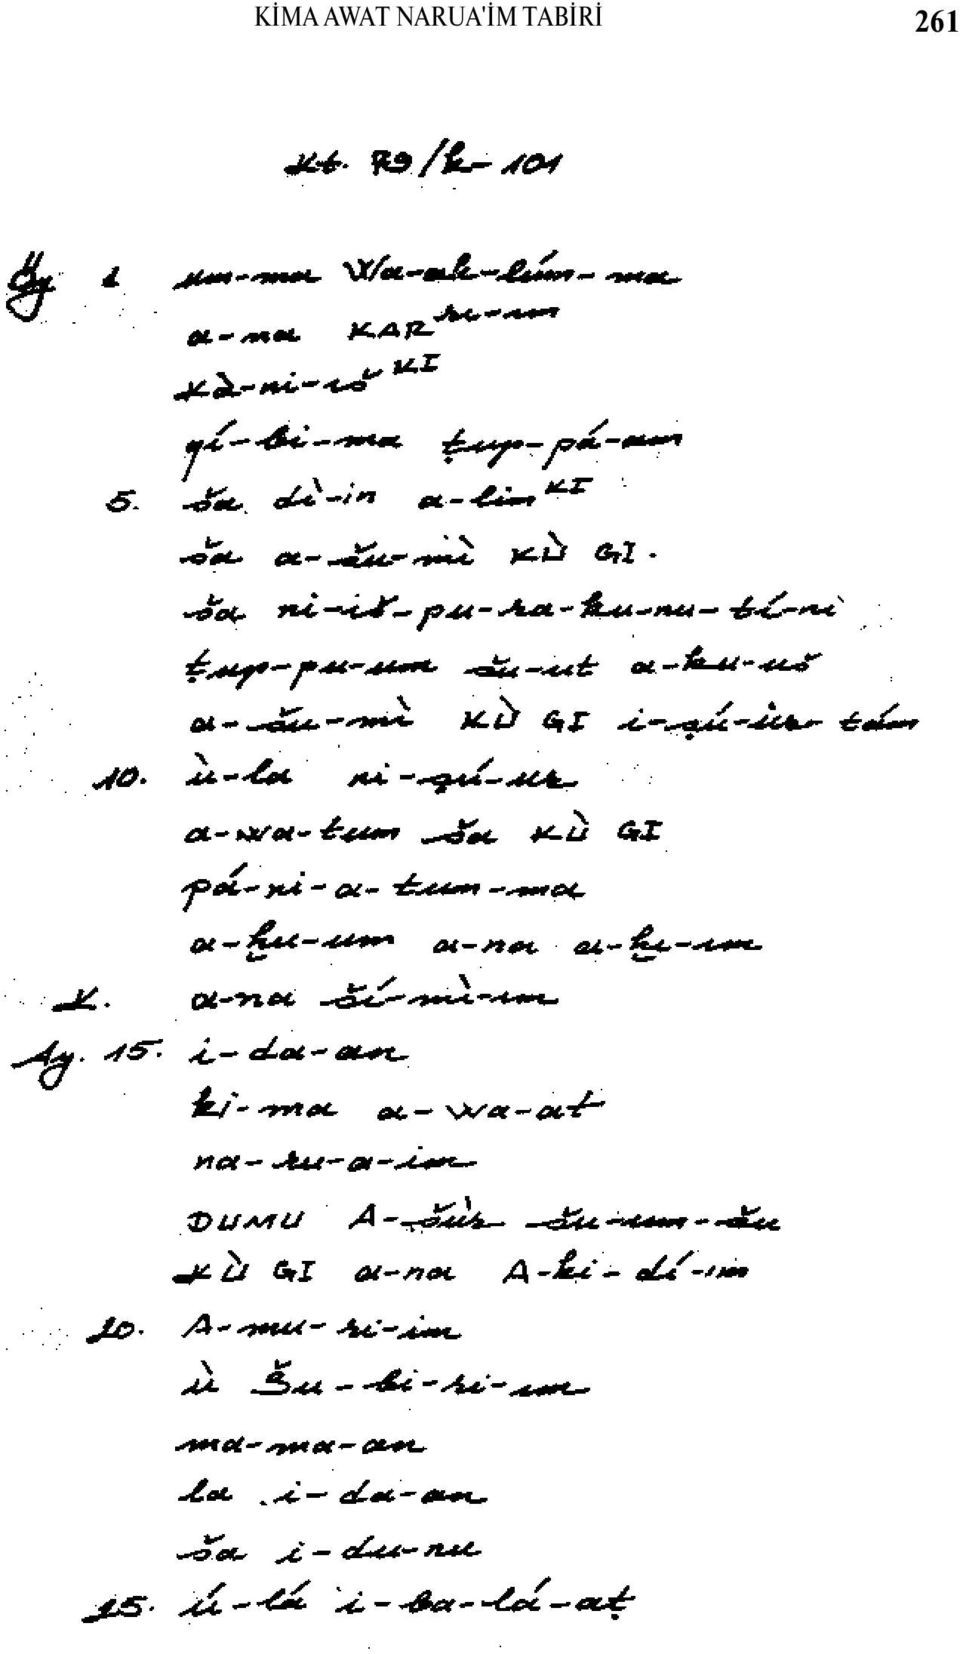 KİMA AWAT NARUA'İM TABİRİ 261
Kt. 79/k-101
Öy 1 um-ma Wa-ak-lúm-ma
a-na KAR ri-im
Kà-ni-iš KI
qí-bi-ma ṭup-pá-am
5. ša dì-in a-lim KI
ša a-šu-mì KÙ GI.
ša ni-iš-pu-ra-ku-nu-tí-nì
ṭup-pu-um šu-ut a-ku-uš
a-šu-mì KÙ GI i-ṣú-ùr tám
10. ù-la ni-ṣú-ur
a-wa-tum ša KÙ GI
pá-ni-a-tum-ma
a-ḫu-um a-na a-ḫi-im
K. a-na ší-mì-im
Ay. 15. i-da-an
ki-ma a-wa-at
na-ru-a-im
DUMU A-šùr šu-um-šu
KÙ GI a-na A-ki-dí-im
20. A-mu-ri-im
ù Šu-bi-ri-im
ma-ma-an
la i-da-an
ša i-du-nu
25. ú-lá i-ba-lá-aṭ